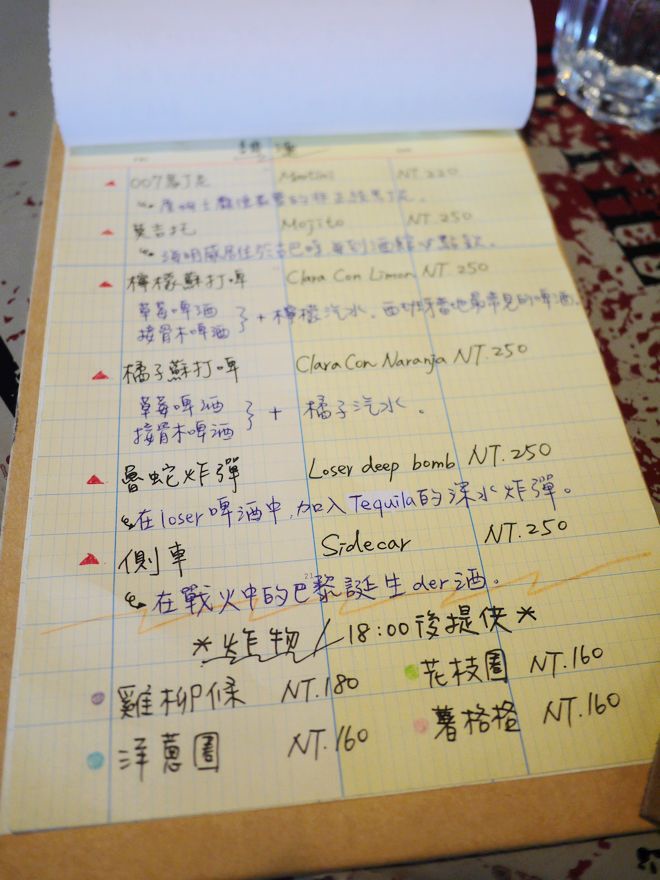 007馬丁尼 Martini NT.220
莫吉托 Mojito NT.250
海明威居住於古巴時,每到酒館必點款。
檸檬蘇打啤 Clara Con Limon NT.250
草莓啤酒
接骨木啤酒 } + 檸檬汽水.西班牙當地最常見的啤酒.
橘子蘇打啤 Clara Con Naranja NT.250
草莓啤酒
接骨木啤酒 } + 橘子汽水.
魯蛇炸彈 Loser deep bomb NT.250
在loser啤酒中,加入Tequila的深水炸彈。
側車 Sidecar NT.250
在戰火中的巴黎誕生der酒。
*炸物/18:00後提供*
雞柳條 NT.180 花枝圈 NT.160
洋蔥圈 NT.160 薯格格 NT.160